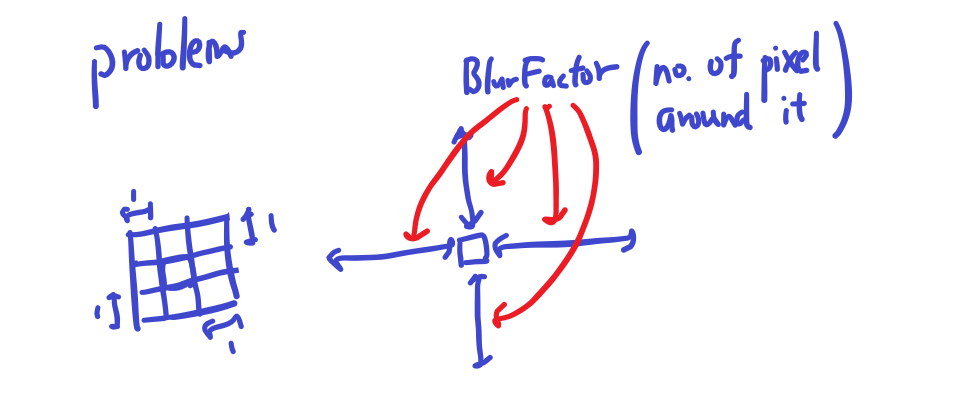 problems
BlurFactor (no. of pixel
around it)
1
1
1
1